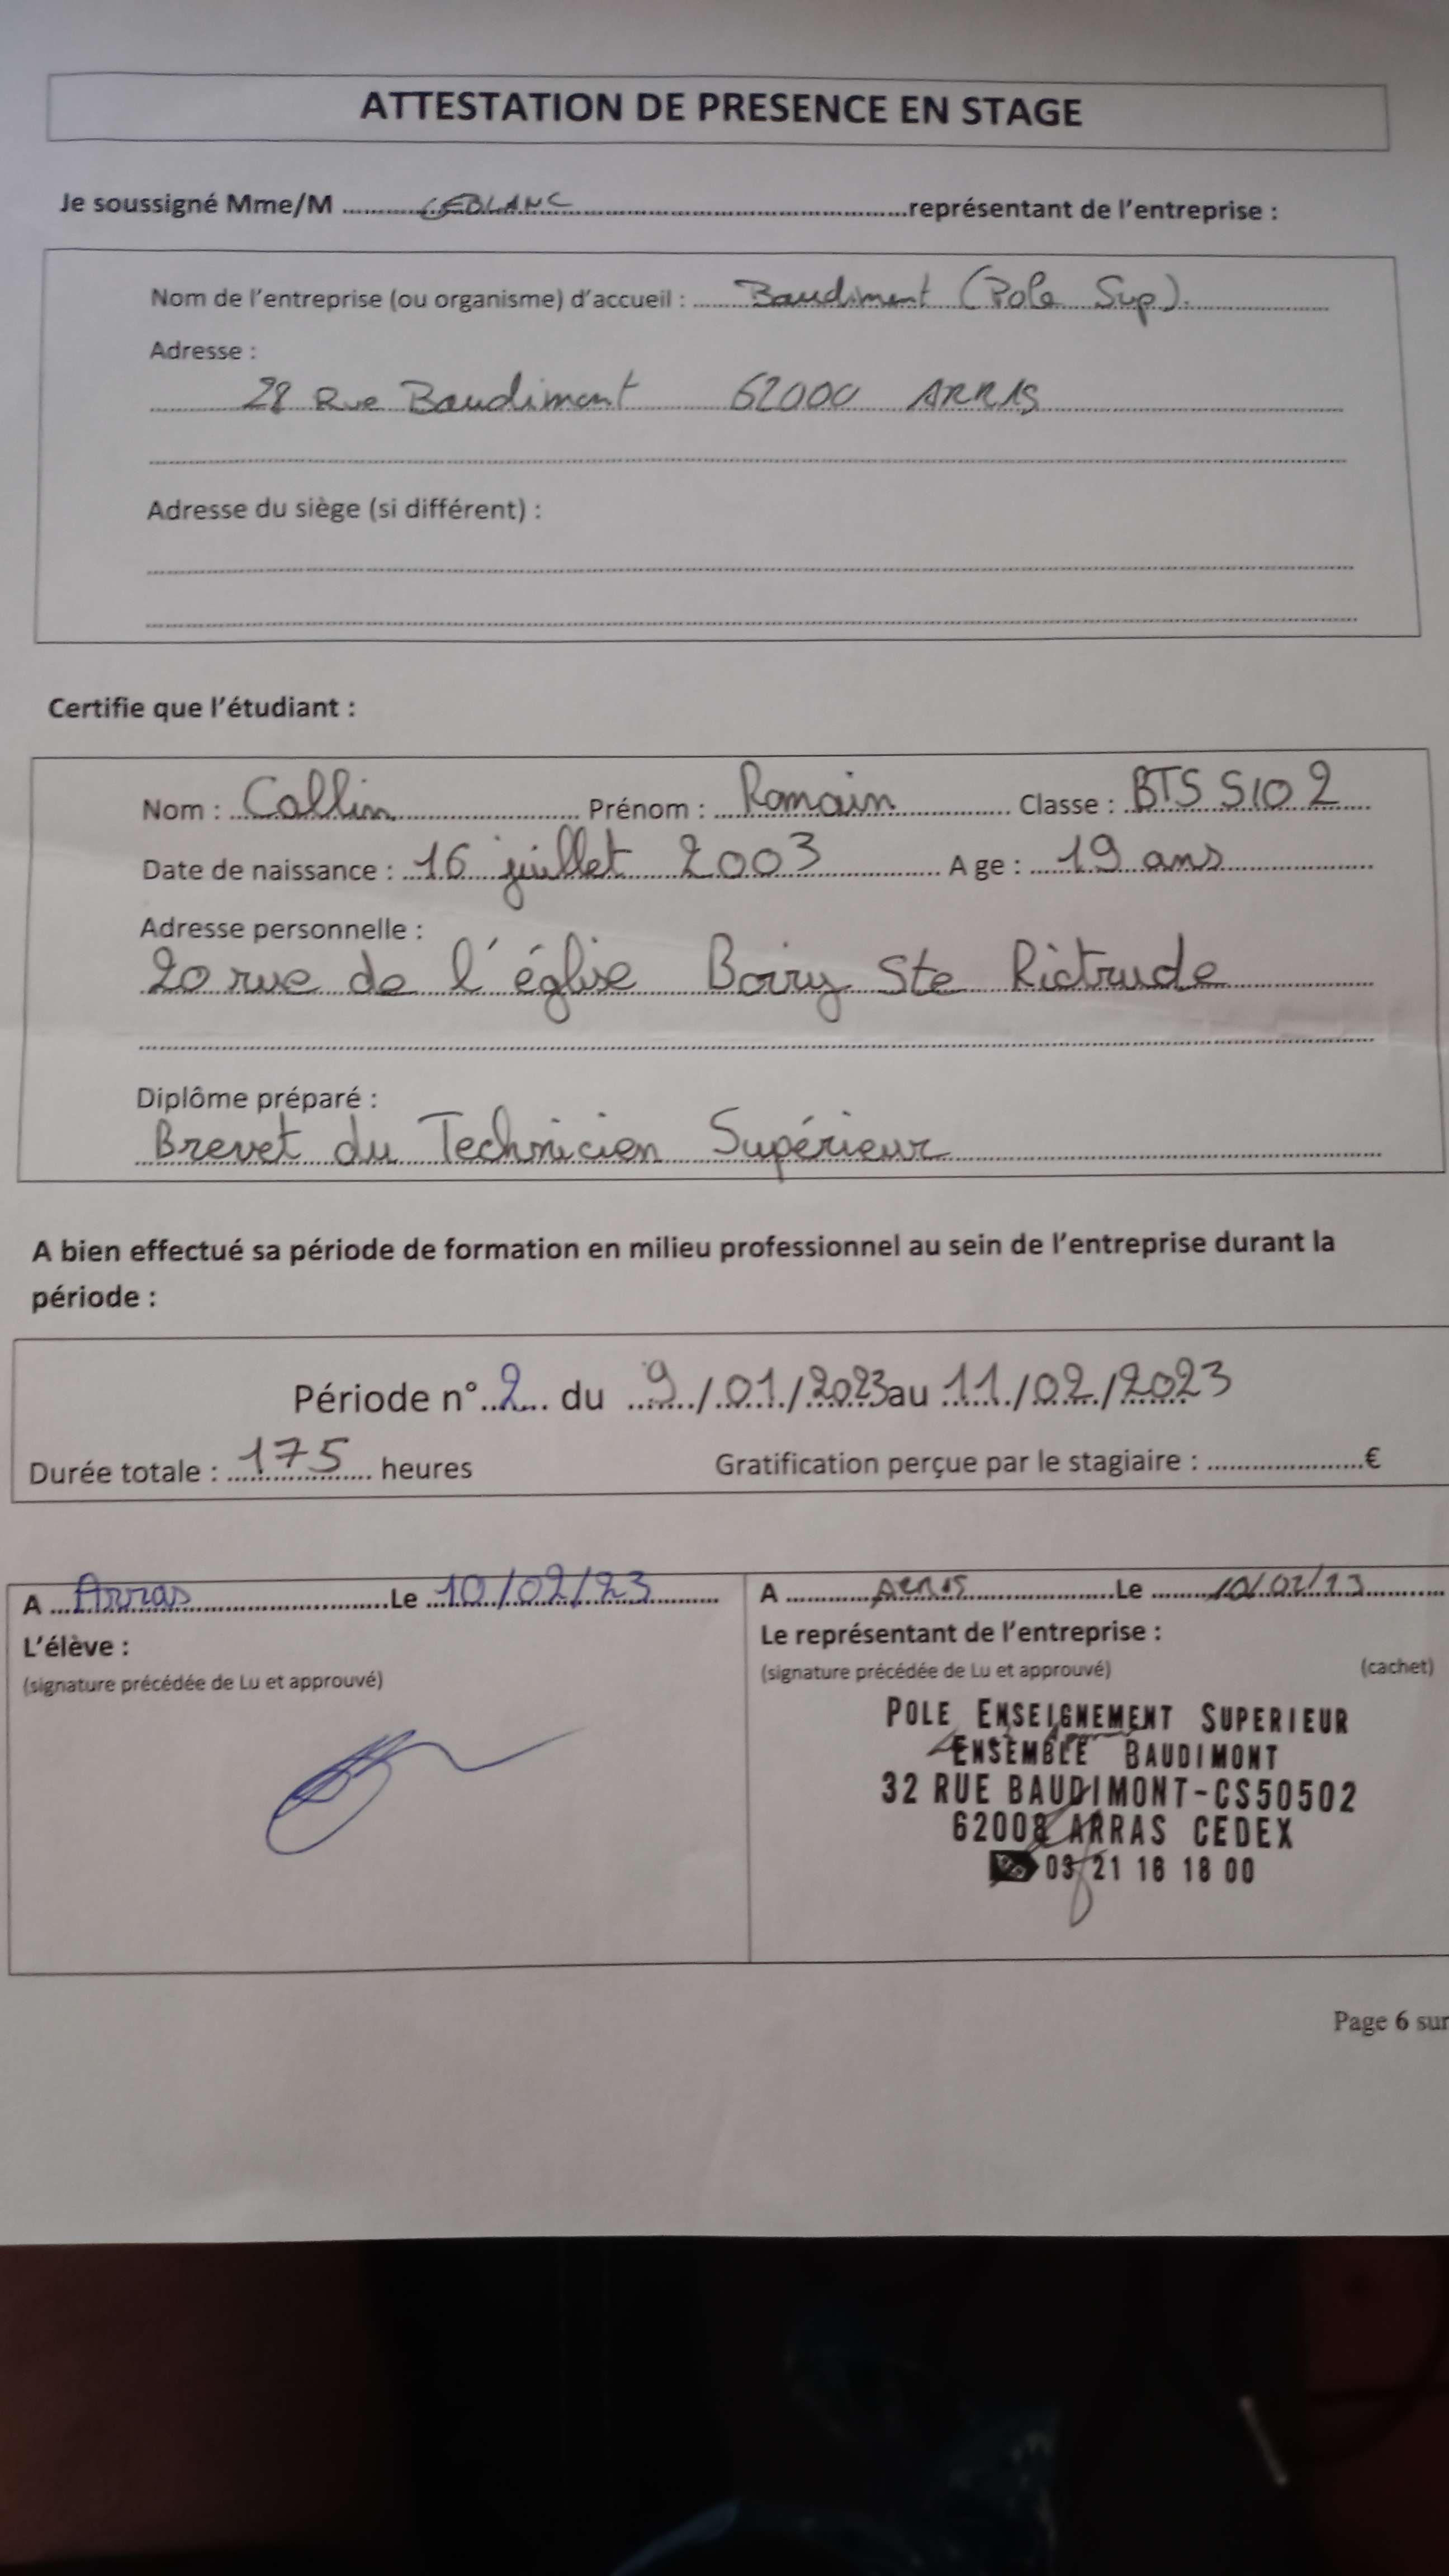 ATTESTATION DE PRESENCE EN STAGE
Je soussigné Mme/M LEBLANC représentant de l'entreprise :
Nom de l'entreprise (ou organisme) d'accueil : Baudimont (Pole Sup).
Adresse :
28 Rue Baudimont 62000 ARRAS
Adresse du siège (si différent) :
Certifie que l'étudiant :
Nom : Collin Prénom : Romain Classe : BTS SIO 2
Date de naissance : 16 juillet 2003 A ge : 19 ans
Adresse personnelle :
20 rue de l'église Boiry Ste Rictrude
Diplôme préparé :
Brevet du Technicien Supérieur
A bien effectué sa période de formation en milieu professionnel au sein de l'entreprise durant la
période :
Période n° 2 du 9/01/2023 au 11/02/2023
Durée totale : 175 heures Gratification perçue par le stagiaire : €
A Arras Le 10/02/23
L'élève :
(signature précédée de Lu et approuvé)
A ARRAS Le 10/02/23
Le représentant de l'entreprise :
(signature précédée de Lu et approuvé) (cachet)
POLE ENSEIGNEMENT SUPERIEUR
ENSEMBLE BAUDIMONT
32 RUE BAUDIMONT-CS50502
62008 ARRAS CEDEX
03 21 16 18 00
Page 6 sur